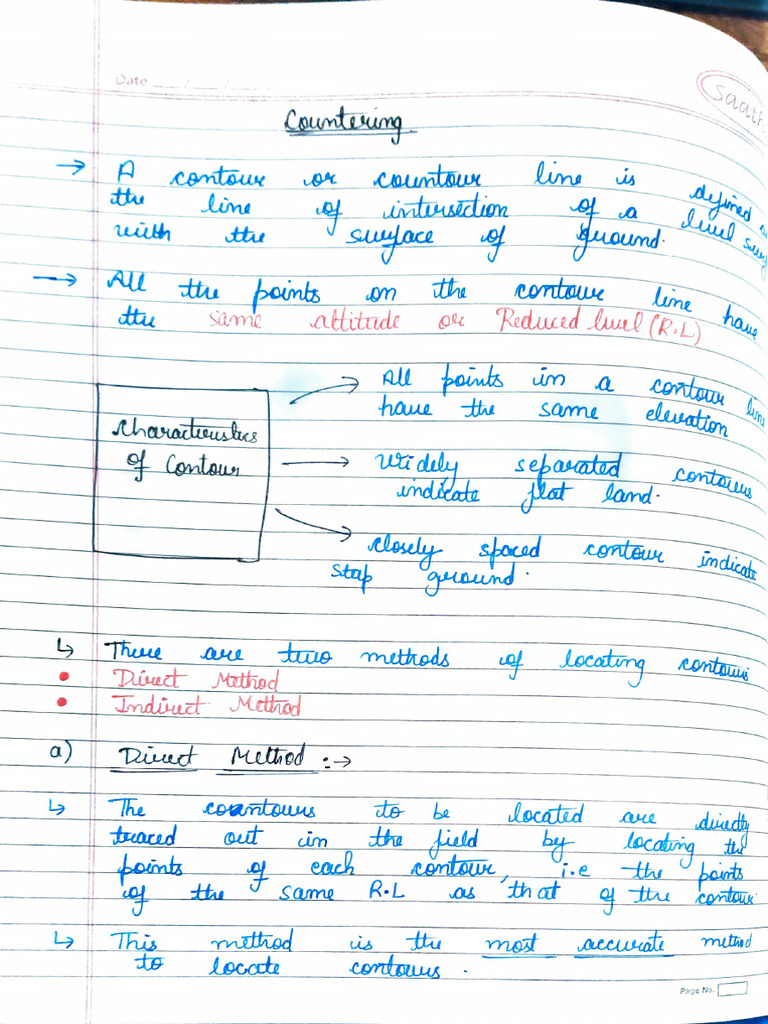 Date __/__/____
Saath
Countering
→ A contour or countour line is defined as
the line of intersection of a level surf
with the surface of ground.
→ All the points on the contour line have
the same attitude or Reduced level (R.L)
Characteristics
of Contour
All points in a contour line
have the same elevation
Widely separated contours
indicate flat land.
closely spaced contour indicate
step ground.
↳ There are two methods of locating contours
• Direct Method
• Indirect Method
a) Direct Method :→
↳ The countours to be located are directly
traced out in the field by locating the
points of each contour, i.e the points
of the same R.L as that of the contour
↳ This method is the most accurate method
to locate contours.
Page No.